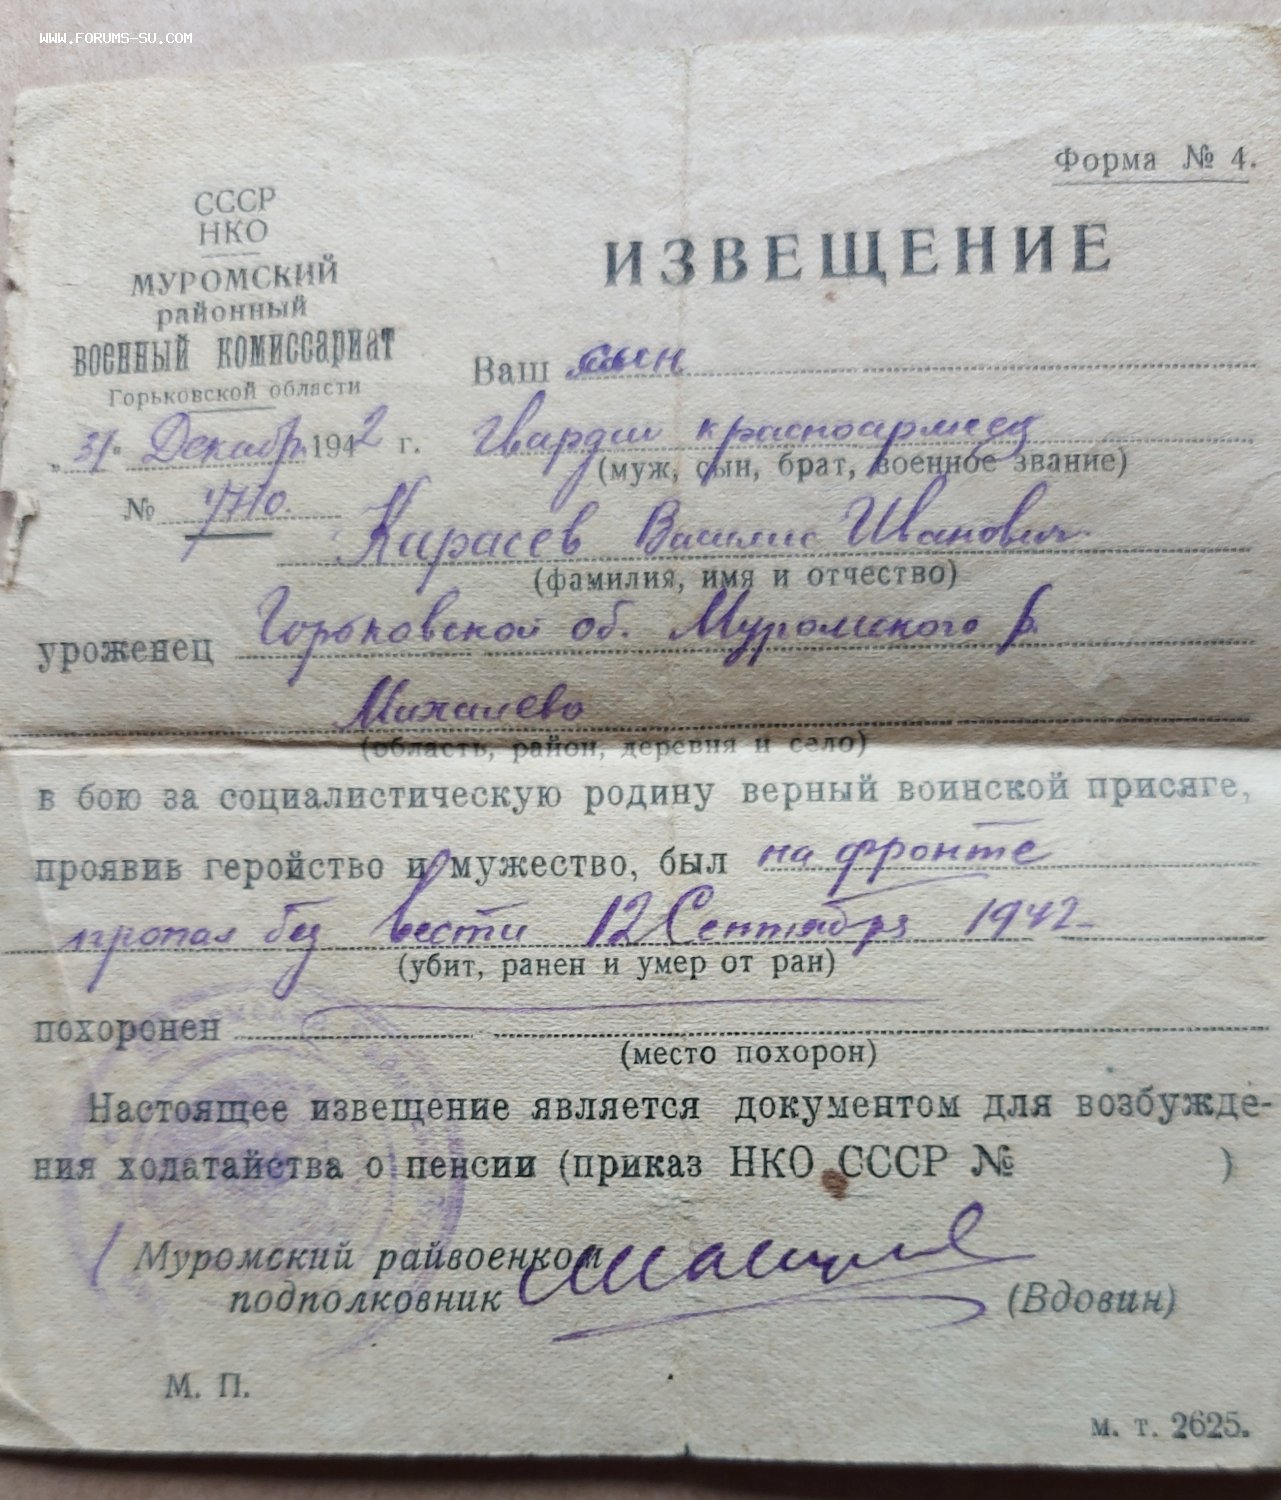 WWW.FORUMS-SU.COM
Форма № 4.
СССР
НКО
МУРОМСКИЙ
районный
ВОЕННЫЙ КОМИССАРИАТ
Горьковской области
„31“ Декабр. 1942 г.
№
ИЗВЕЩЕНИЕ
Ваш сын
Гвардии красноармеец
(муж, сын, брат, военное звание)
Карасев Василис Иванович
(фамилия, имя и отчество)
уроженец Горьковской об. Муромского р.
Михалево
(область, район, деревня и село)
в бою за социалистическую родину верный воинской присяге,
проявив геройство и мужество, был на фронте
пропал без вести 12 Сентября 1942
(убит, ранен и умер от ран)
похоронен
(место похорон)
Настоящее извещение является документом для возбужде-
ния ходатайства о пенсии (приказ НКО СССР № )
Муромский райвоенком
подполковник (Вдовин)
М. П.
м. т. 2625.